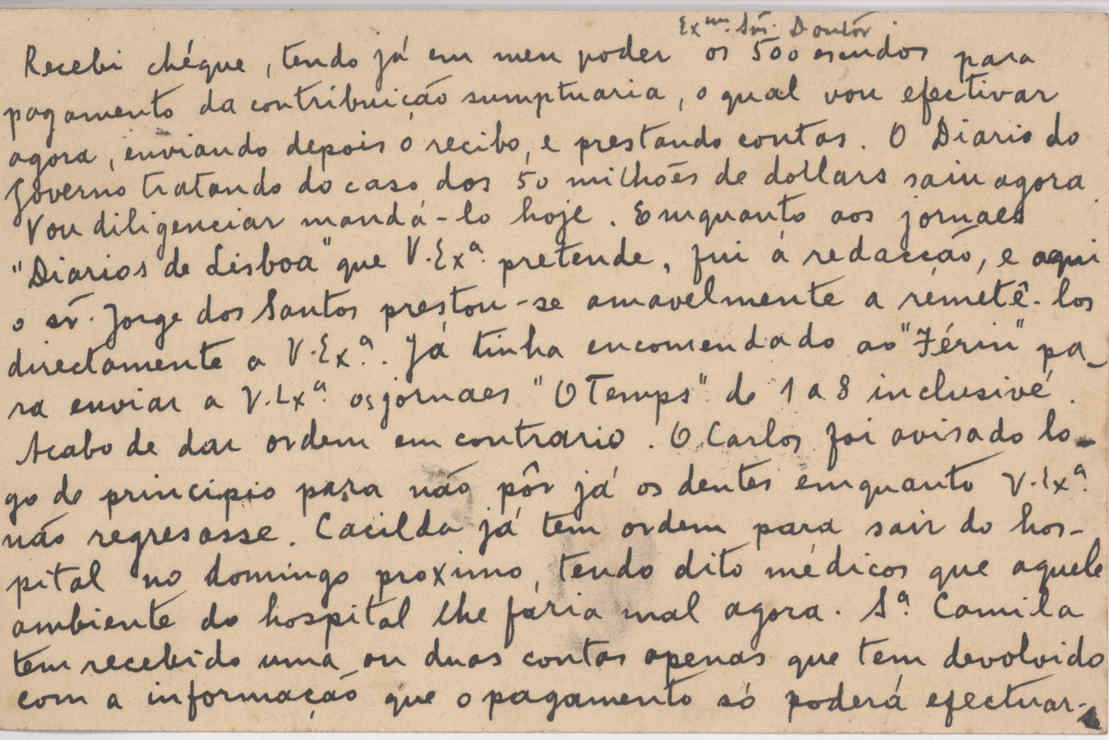 Exmo. Snr. Doutôr
Recebi chéque, tendo já em meu poder os 500 escudos para
pagamento da contribuição sumptuaria, o qual vou efectivar
agora, enviando depois o recibo, e prestando contas. O Diario do
Governo tratando do caso dos 50 milhões de dollars saiu agora.
Vou diligenciar mandá-lo hoje. Emquanto aos jornaes
"Diarios de Lisboa" que V. Exª. pretende, fui á redacção, e aqui
o sr. Jorge dos Santos prestou-se amavelmente a remetê-los
directamente a V. Exª. Já tinha encomendado ao "Férin" pa-
ra enviar a V. Exª. os jornaes "O Temps" de 1 a 8 inclusivé.
Acabo de dar ordem em contrario. O Carlos foi avisado lo-
go de principio para não pôr já os dentes emquanto V. Exª.
não regresasse. Cacilda já tem ordem para sair do hos-
pital no domingo proximo, tendo dito médicos que aquele
ambiente do hospital lhe fária mal agora. Sª. Camila
tem recebido uma ou duas contas apenas que tem devolvido
com a informação que o pagamento só poderá efectuar-